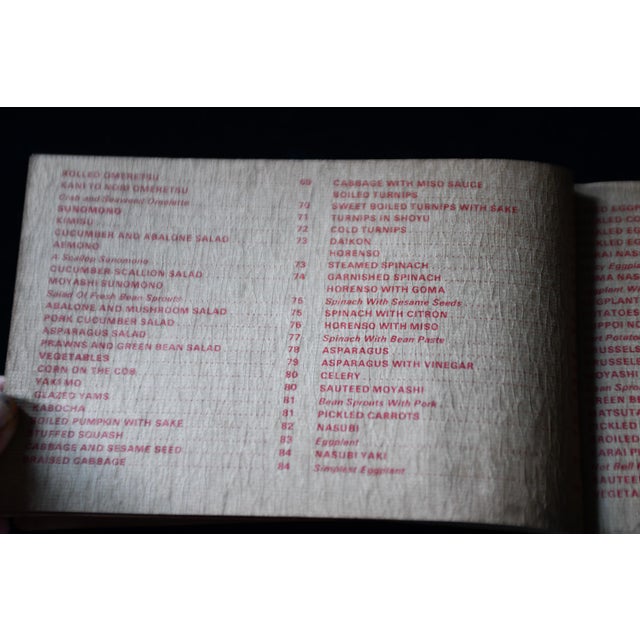 ROLLED OMERETSU
KANI TO NORI OMERETSU
Crab and Seaweed Omelette 69
SUNOMONO
KIMISU 70
CUCUMBER AND ABALONE SALAD 71
AEMONO 72
A Scallop Sunomono 73
CUCUMBER-SCALLION SALAD
MOYASHI SUNOMONO 73
Salad Of Fresh Bean Sprouts 74
ABALONE AND MUSHROOM SALAD
PORK CUCUMBER SALAD 75
ASPARAGUS SALAD 75
PRAWNS AND GREEN BEAN SALAD 76
VEGETABLES 77
CORN ON THE COB 78
YAKI MO 79
GLAZED YAMS 80
KABOCHA 80
BOILED PUMPKIN WITH SAKE 81
STUFFED SQUASH 81
CABBAGE AND SESAME SEED 82
BRAISED CABBAGE 83
84
84
CABBAGE WITH MISO SAUCE
BOILED TURNIPS
SWEET BOILED TURNIPS WITH SAKE
TURNIPS IN SHOYU
COLD TURNIPS
DAIKON
HORENSO
STEAMED SPINACH
GARNISHED SPINACH
HORENSO WITH GOMA
Spinach With Sesame Seeds
SPINACH WITH CITRON
HORENSO WITH MISO
Spinach With Bean Paste
ASPARAGUS
ASPARAGUS WITH VINEGAR
CELERY
SAUTEED MOYASHI
Bean Sprouts With Pork
PICKLED CARROTS
NASUBI
Eggplant
NASUBI YAKI
Simplest Eggplant